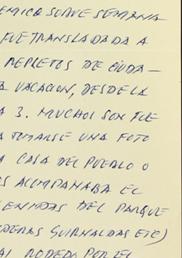 EMICO SUAVE SEMANA
FUE TRANSLADADA A
REPLETOS DE CIUDA-
A VACACION, DESDE LA
A 3. MUCHOS SON
A TOMARSE UNA FOTO
A CASA DEL PUEBLO O
OS ACOMPAÑABA EL
ENIDAS DEL PARQUE
DERAS GUIRNALDAS ETC)
AL RODEDO POR EL